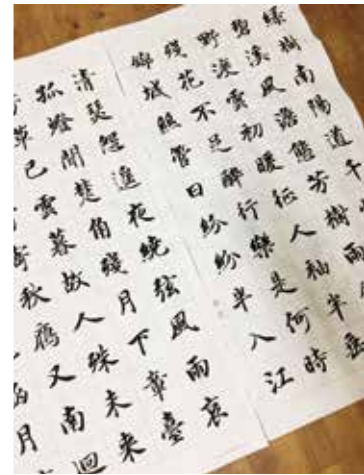 綠樹南陽道千
碧溪風澹態芳樹雨
野渡雲初暖征人袖半
殘花不足醉行樂是何時
錦城絲管日紛紛半入江
清瑟怨遙夜繞弦風雨哀
孤燈聞楚角殘月下章臺
草已雲暮故人殊未来
寄秋鴈又南迴
月